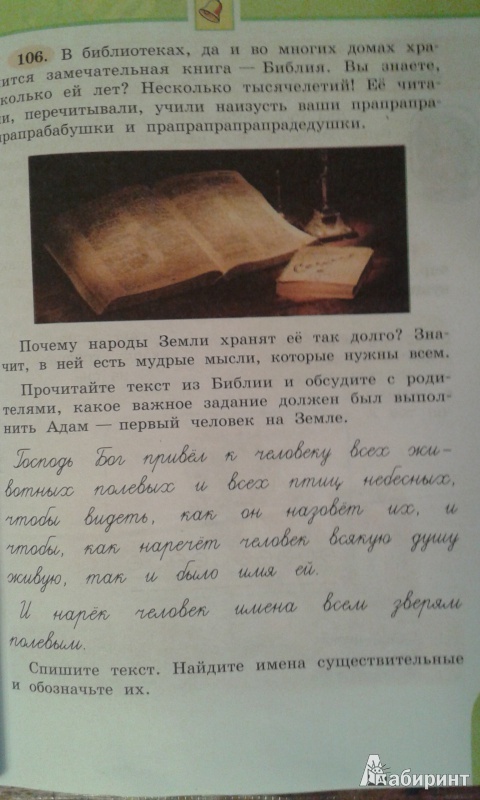 106. В библиотеках, да и во многих домах хра-
нится замечательная книга — Библия. Вы знаете,
сколько ей лет? Несколько тысячелетий! Её чита-
ли, перечитывали, учили наизусть ваши прапрапра-
прапрабабушки и прапрапрапрапрадедушки.
Почему народы Земли хранят её так долго? Зна-
чит, в ней есть мудрые мысли, которые нужны всем.
Прочитайте текст из Библии и обсудите с роди-
телями, какое важное задание должен был выпол-
нить Адам — первый человек на Земле.
Господь Бог привёл к человеку всех жи-
вотных полевых и всех птиц небесных,
чтобы видеть, как он назовёт их, и
чтобы, как наречёт человек всякую душу
живую, так и было имя ей.
И нарёк человек имена всем зверям
полевым.
Спишите текст. Найдите имена существительные
и обозначьте их.
Лабиринт